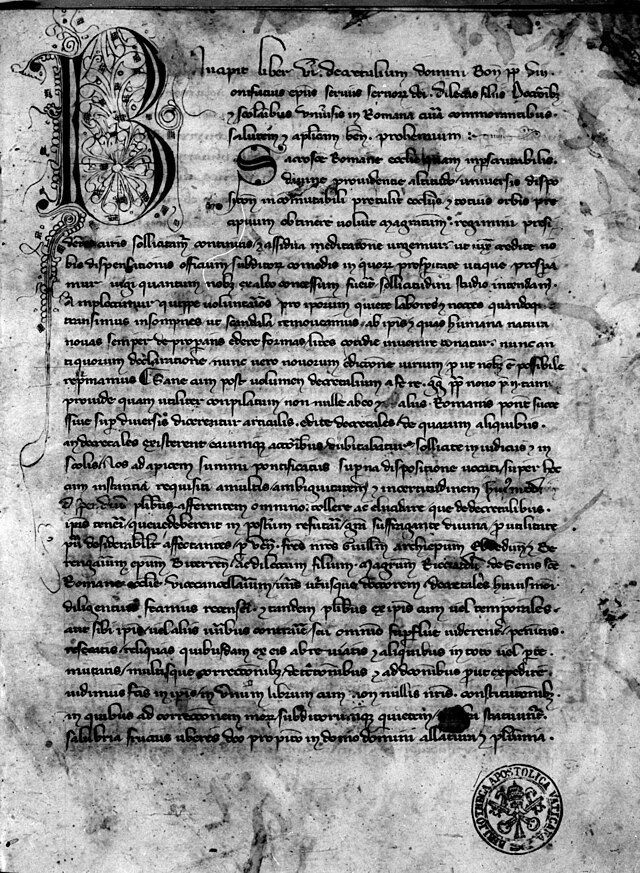 Incipit liber vi. decretalium domini Bon pp viii.
onifatius epus servus servor dei. dilectis filiis Doctorib
et scolaribus universis in Romana curia commorantibus.
salutem et aplicam ben. prohemium
Sacrosce Romane ecclesie quam inperscrutabilis.
divine providentie altitudo universis dispo
sition incommutabili pretulit ecclesiis et totius orbis pre
cipuum obtinere voluit magistratum. regimini presi
dentes curis sollicitam continuis et assidua meditatione urgemur ut iux credite no
bis dispensationis officium subditor comodis in quor prosperitate utique prospera
mur iugi quantum nobis ex alto concessum fuerit sollicitudinis studio intendam.
Amplectimur quippe voluntarios pro ipsorum quiete labores et noctes quandoque
transimus insompnes ut scandala removeamus ab ipsis et quas humana natura
novas semper deproperans edere formas lites cotidie invenire conatur. nunc an
tiquorum declaratione nunc vero novorum editione iurium prout nobis est possibile
reprimamus Sane cum post volumen decretalium a fe re. gg pp nono p n tam
provide quam utiliter compilatum non nulle ab eo et aliis Romanis pont succe
ssive sup diversis dicerentur articulis edite decretales de quarum aliquibus.
an decretales existerent earumque auctoribus dubitabatur sollicite in iudiciis et in
scolis Nos ad apicem summi pontificatus superna dispositione vocati super hoc
cum instantia requisiti a multis ambiguitatem et incertitudinem
plibus afferentem omnino tollere ac elucidare que de decretalibus.
ipsis teneri queve deberent in posterum refutari gra suffragante divina pro utilitate
pu desiderabiliter affectantes p ven. fres nros Guillm archiepum Ebredun et Be
rengarium epum Biterren ac dilectum filium magrum Riccardu de Senis sce
Romane ecclie vicecancellarium iuris utriusque doctorem decretales huiusmoi
diligentius fecimus recenseri et tandem pluribus ex ipsis cum vel temporales.
aut sibi ipsis vel aliis iuribus contrarie seu omnino superflue viderent penitus.
resecatis reliquas quibusdam ex eis abreviatis et aliquibus in toto vel pte
mutatis multisque correctionib detractionibus et additionibus prout expedire.
vidimus factis in ipsis in unum librum cum non nullis nris constitutionib
in quibus ad correctionem mor subditorumque quietem statuunt.
salubria fructus uberes deo propitio in domo domini allatura et plurima.
BIBLIOTECA APOSTOLICA VATICANA